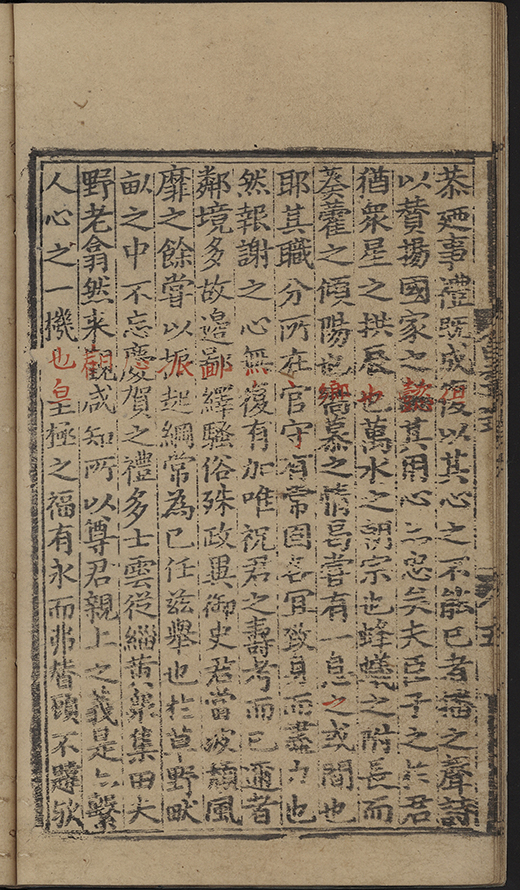 恭廼事禮既成復以其心之不能已者播之聲詩
以賛揚國家之懿其用心亦忠矣夫臣子之於君
猶衆星之拱辰也萬水之朝宗也蜂蟻之附長而
葵藿之傾陽也嚮慕之情曷嘗有一息之或間也
耶其職分所在官守有常固宜致身而盡力也
然報謝之心無復有加唯祝君之壽考而已邇者
鄰境多故邊鄙繹騷俗殊政異御史君當波頽風
靡之餘嘗以振起綱常為已任兹舉也於草野畎
畝之中不忘慶賀之禮多士雲從緇黄畢集田夫
野老翕然来觀咸知所以尊君親上之義是亦繫
人心之一機也皇極之福有永而弗替頃不韙歟